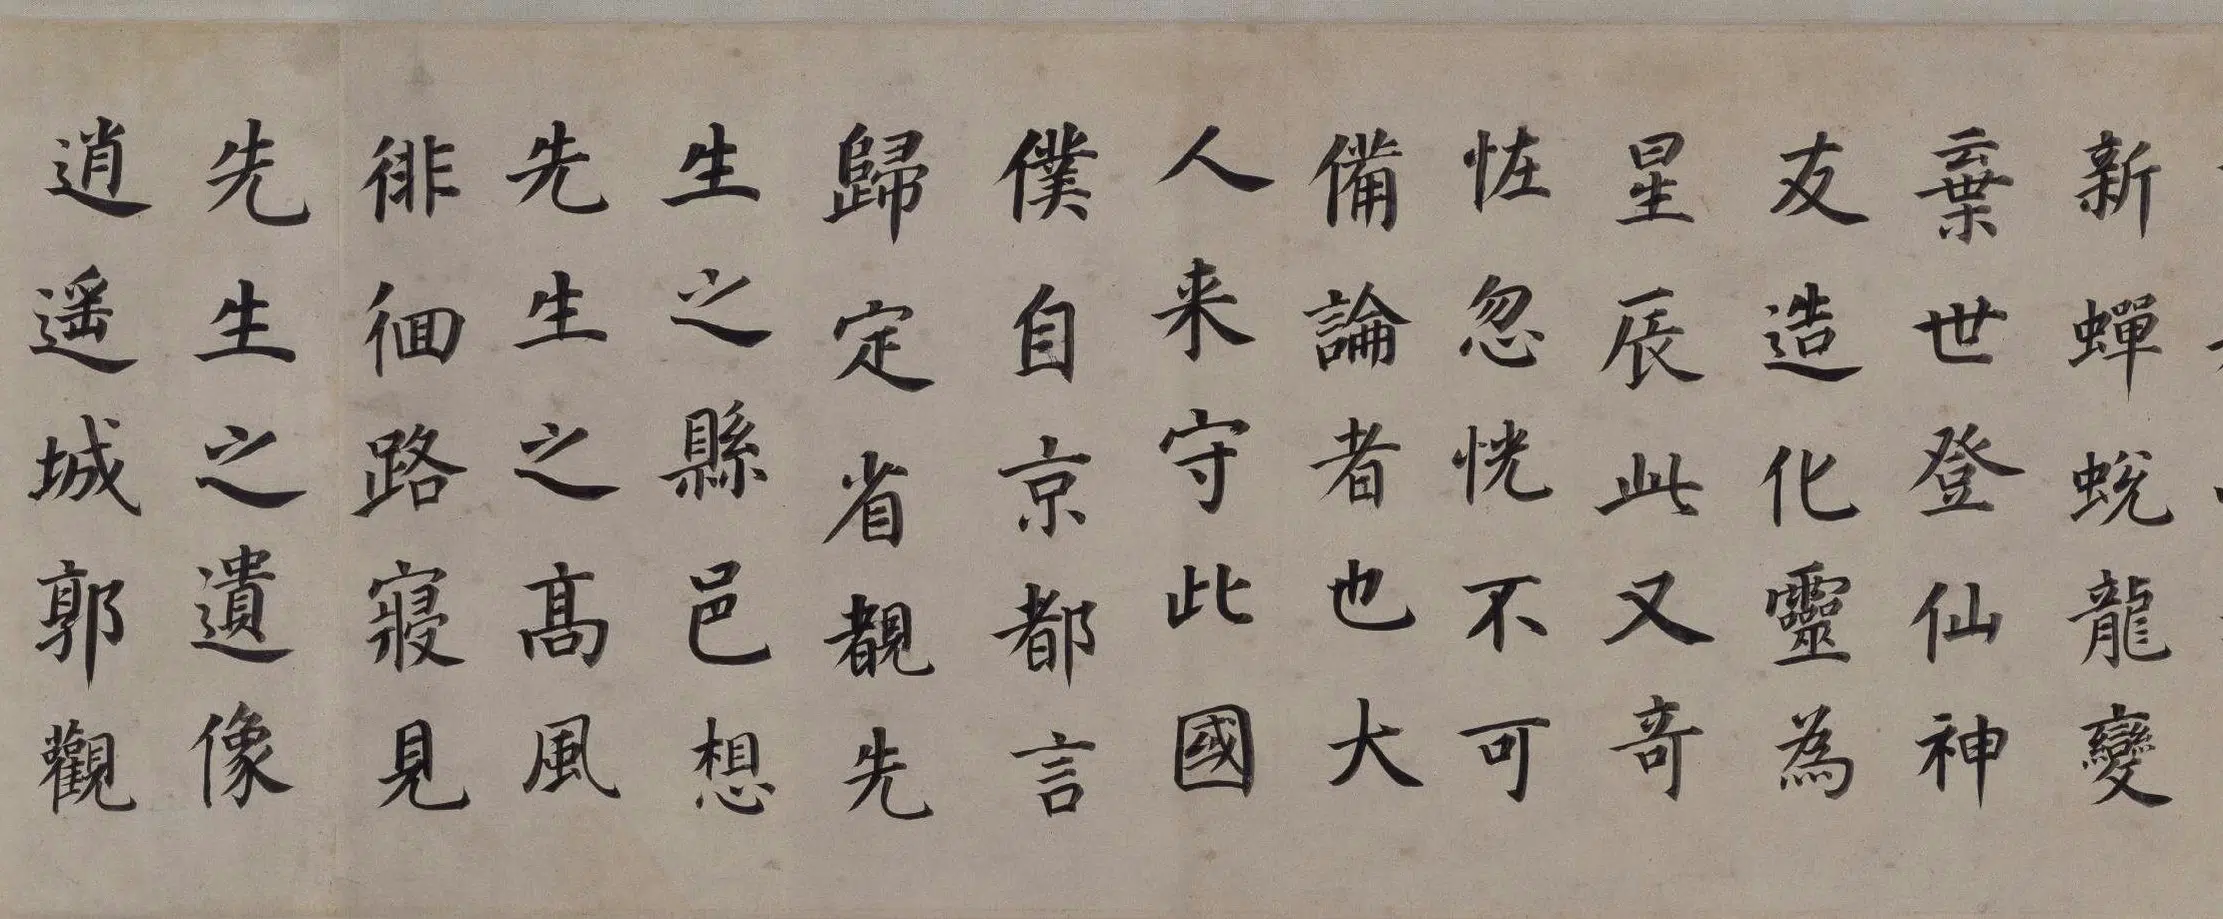 新蟬蛻龍變
棄世登仙神
友造化靈為
星辰此又奇
恠忽恍不可
備論者也大
人来守此國
僕自京都言
歸定省覩先
生之縣邑想
先生之髙風
徘徊路寢見
先生之遺像
逍遥城郭觀